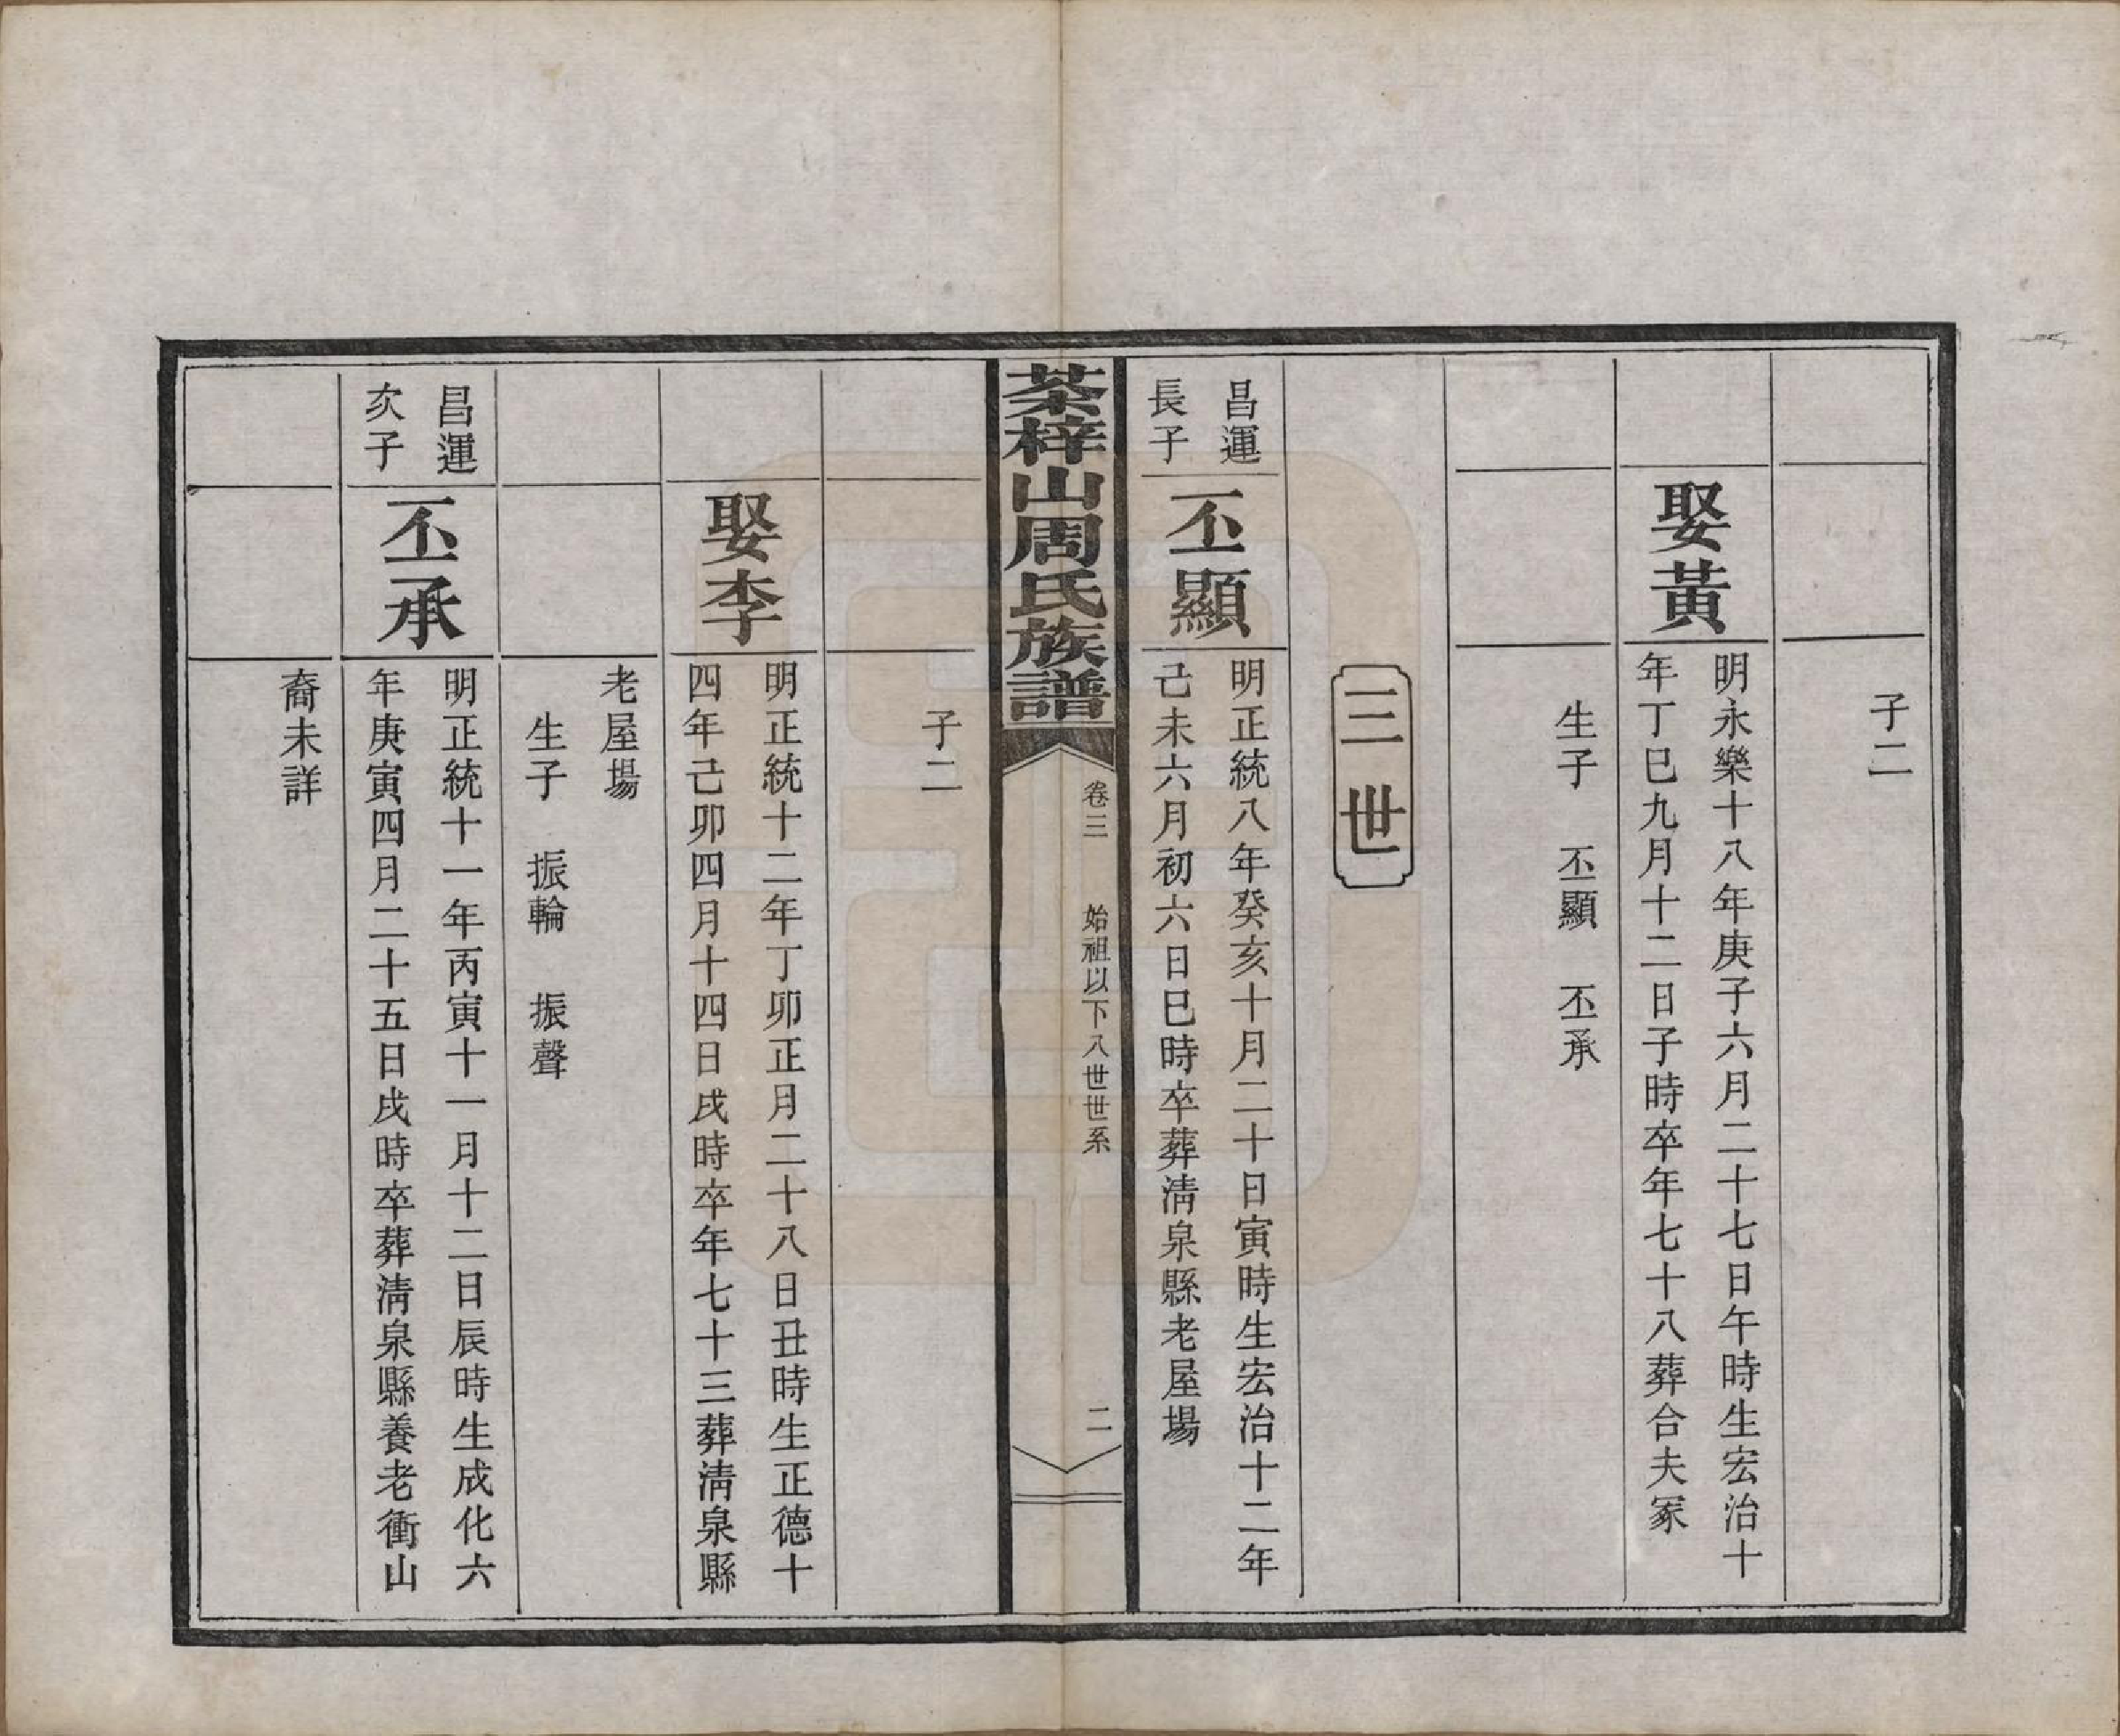 子二
娶黃
明永樂十八年庚子六月二十七日午時生宏治十
年丁巳九月十二日子時卒年七十八葬合夫冢
生子 丕顯 丕承
三世
昌運
長子
丕顯
明正統八年癸亥十月二十日寅時生宏治十二年
己未六月初六日巳時卒葬清泉縣老屋場
茶梓山周氏族譜
卷三 始祖以下八世世系 二
子二
娶李
明正統十二年丁卯正月二十八日丑時生正德十
四年己卯四月十四日戌時卒年七十三葬清泉縣
老屋場
生子 振輪 振聲
昌運
次子
丕承
明正統十一年丙寅十一月十二日辰時生成化六
年庚寅四月二十五日戌時卒葬清泉縣養老衝山
裔未詳